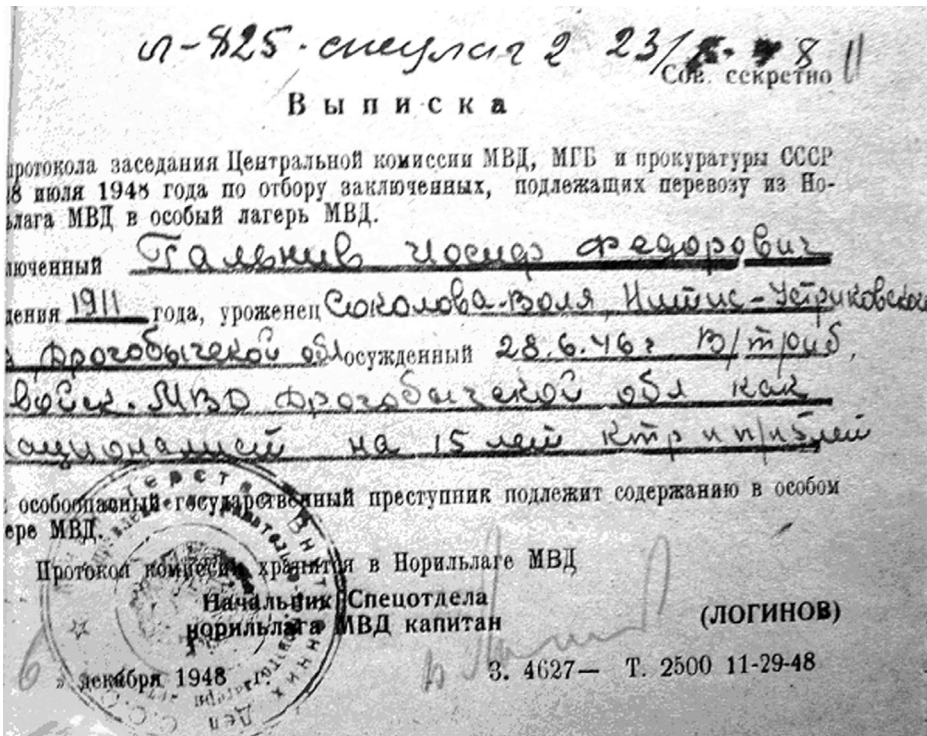 л-825 - спецлаг 2 23/ 8
Сов. секретно
Выписка
протокола заседания Центральной комиссии МВД, МГБ и прокуратуры СССР
18 июля 1948 года по отбору заключенных, подлежащих перевозу из Но-
ьлага МВД в особый лагерь МВД.
люченный Гальнив Иосиф Федорович
дения 1911 года, уроженец Соколова-Воля, Нитис-Устриковского
Дрогобычской обл осужденный 28.6.46г В/триб,
войск. МВД Дрогобычской обл как
националист на 15 лет ктр и п/п 5 лет
особоопасный государственный преступник подлежит содержанию в особом
ере МВД.
Протокол комиссии хранится в Норильлаге МВД
Начальник Спецотдела
норильлага МВД капитан (ЛОГИНОВ)
6 » декабря 1948 З. 4627— Т. 2500 11-29-48